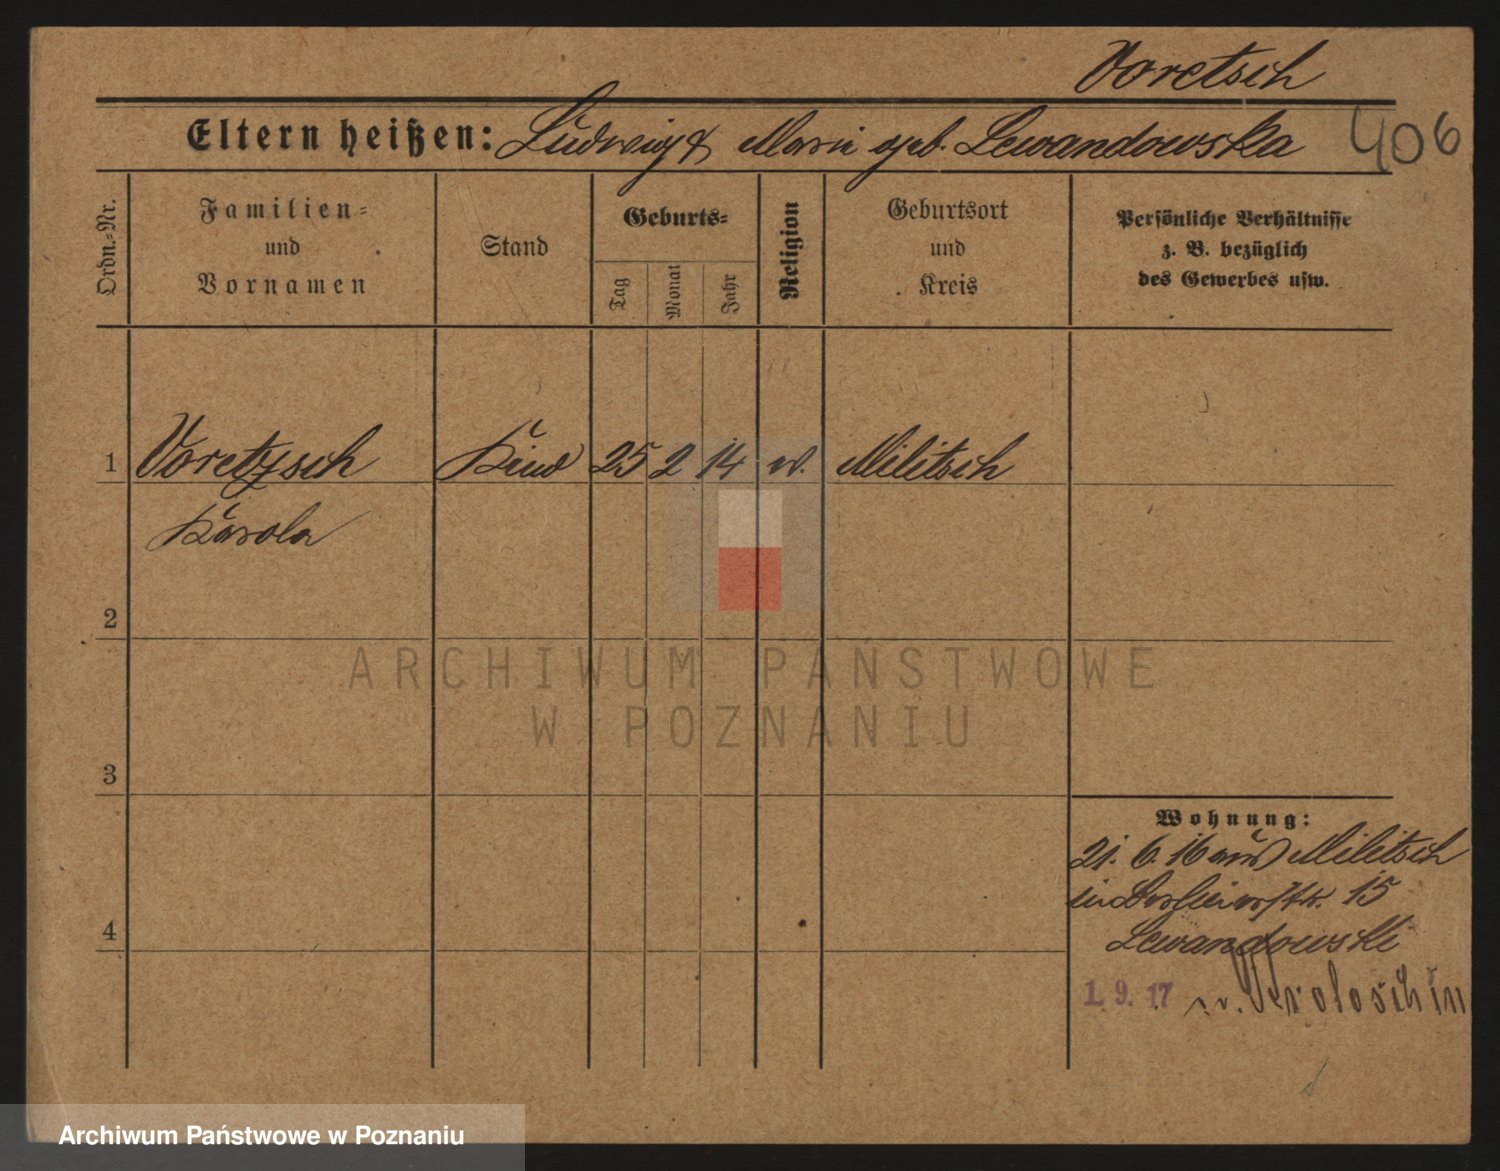 Voretsch
Eltern heißen: Ludwig & Marie geb. Lewandowska 406
Ordn.-Nr.
Familien-
und
Vornamen
Stand
Geburts-
Tag
Monat
Jahr
Religion
Geburtsort
und
Kreis
Persönliche Verhältnisse
z. B. bezüglich
des Gewerbes usw.
1 Voretzsch Kind 25 2 14 Militsch
Karola
2
ARCHIWUM PAŃSTWOWE
W POZNANIU
3
Wohnung:
21. 6. 16 aus Militsch
15
Lewandowski
4
1. 9. 17
Archiwum Państwowe w Poznaniu